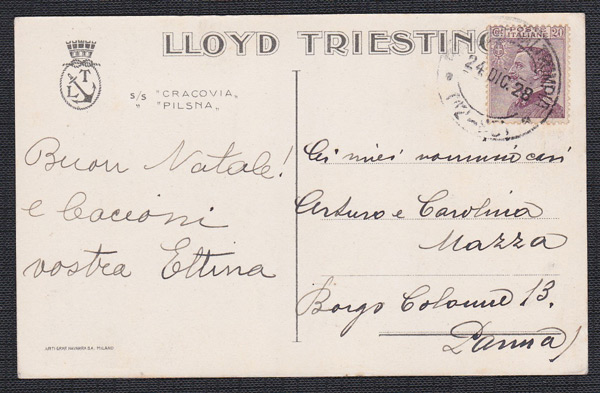 LLOYD TRIESTINO
L T
S/S "CRACOVIA"
" "PILSNA"
POSTE ITALIANE
C. 20
24. DIC. 28
Buon Natale!
e bacioni
vostra Ettina
Ai miei
Arturo e Carolina
Mazza
Borgo Colonne 13.
Parma
ARTI GRAF. NAVARRA S.A. MILANO